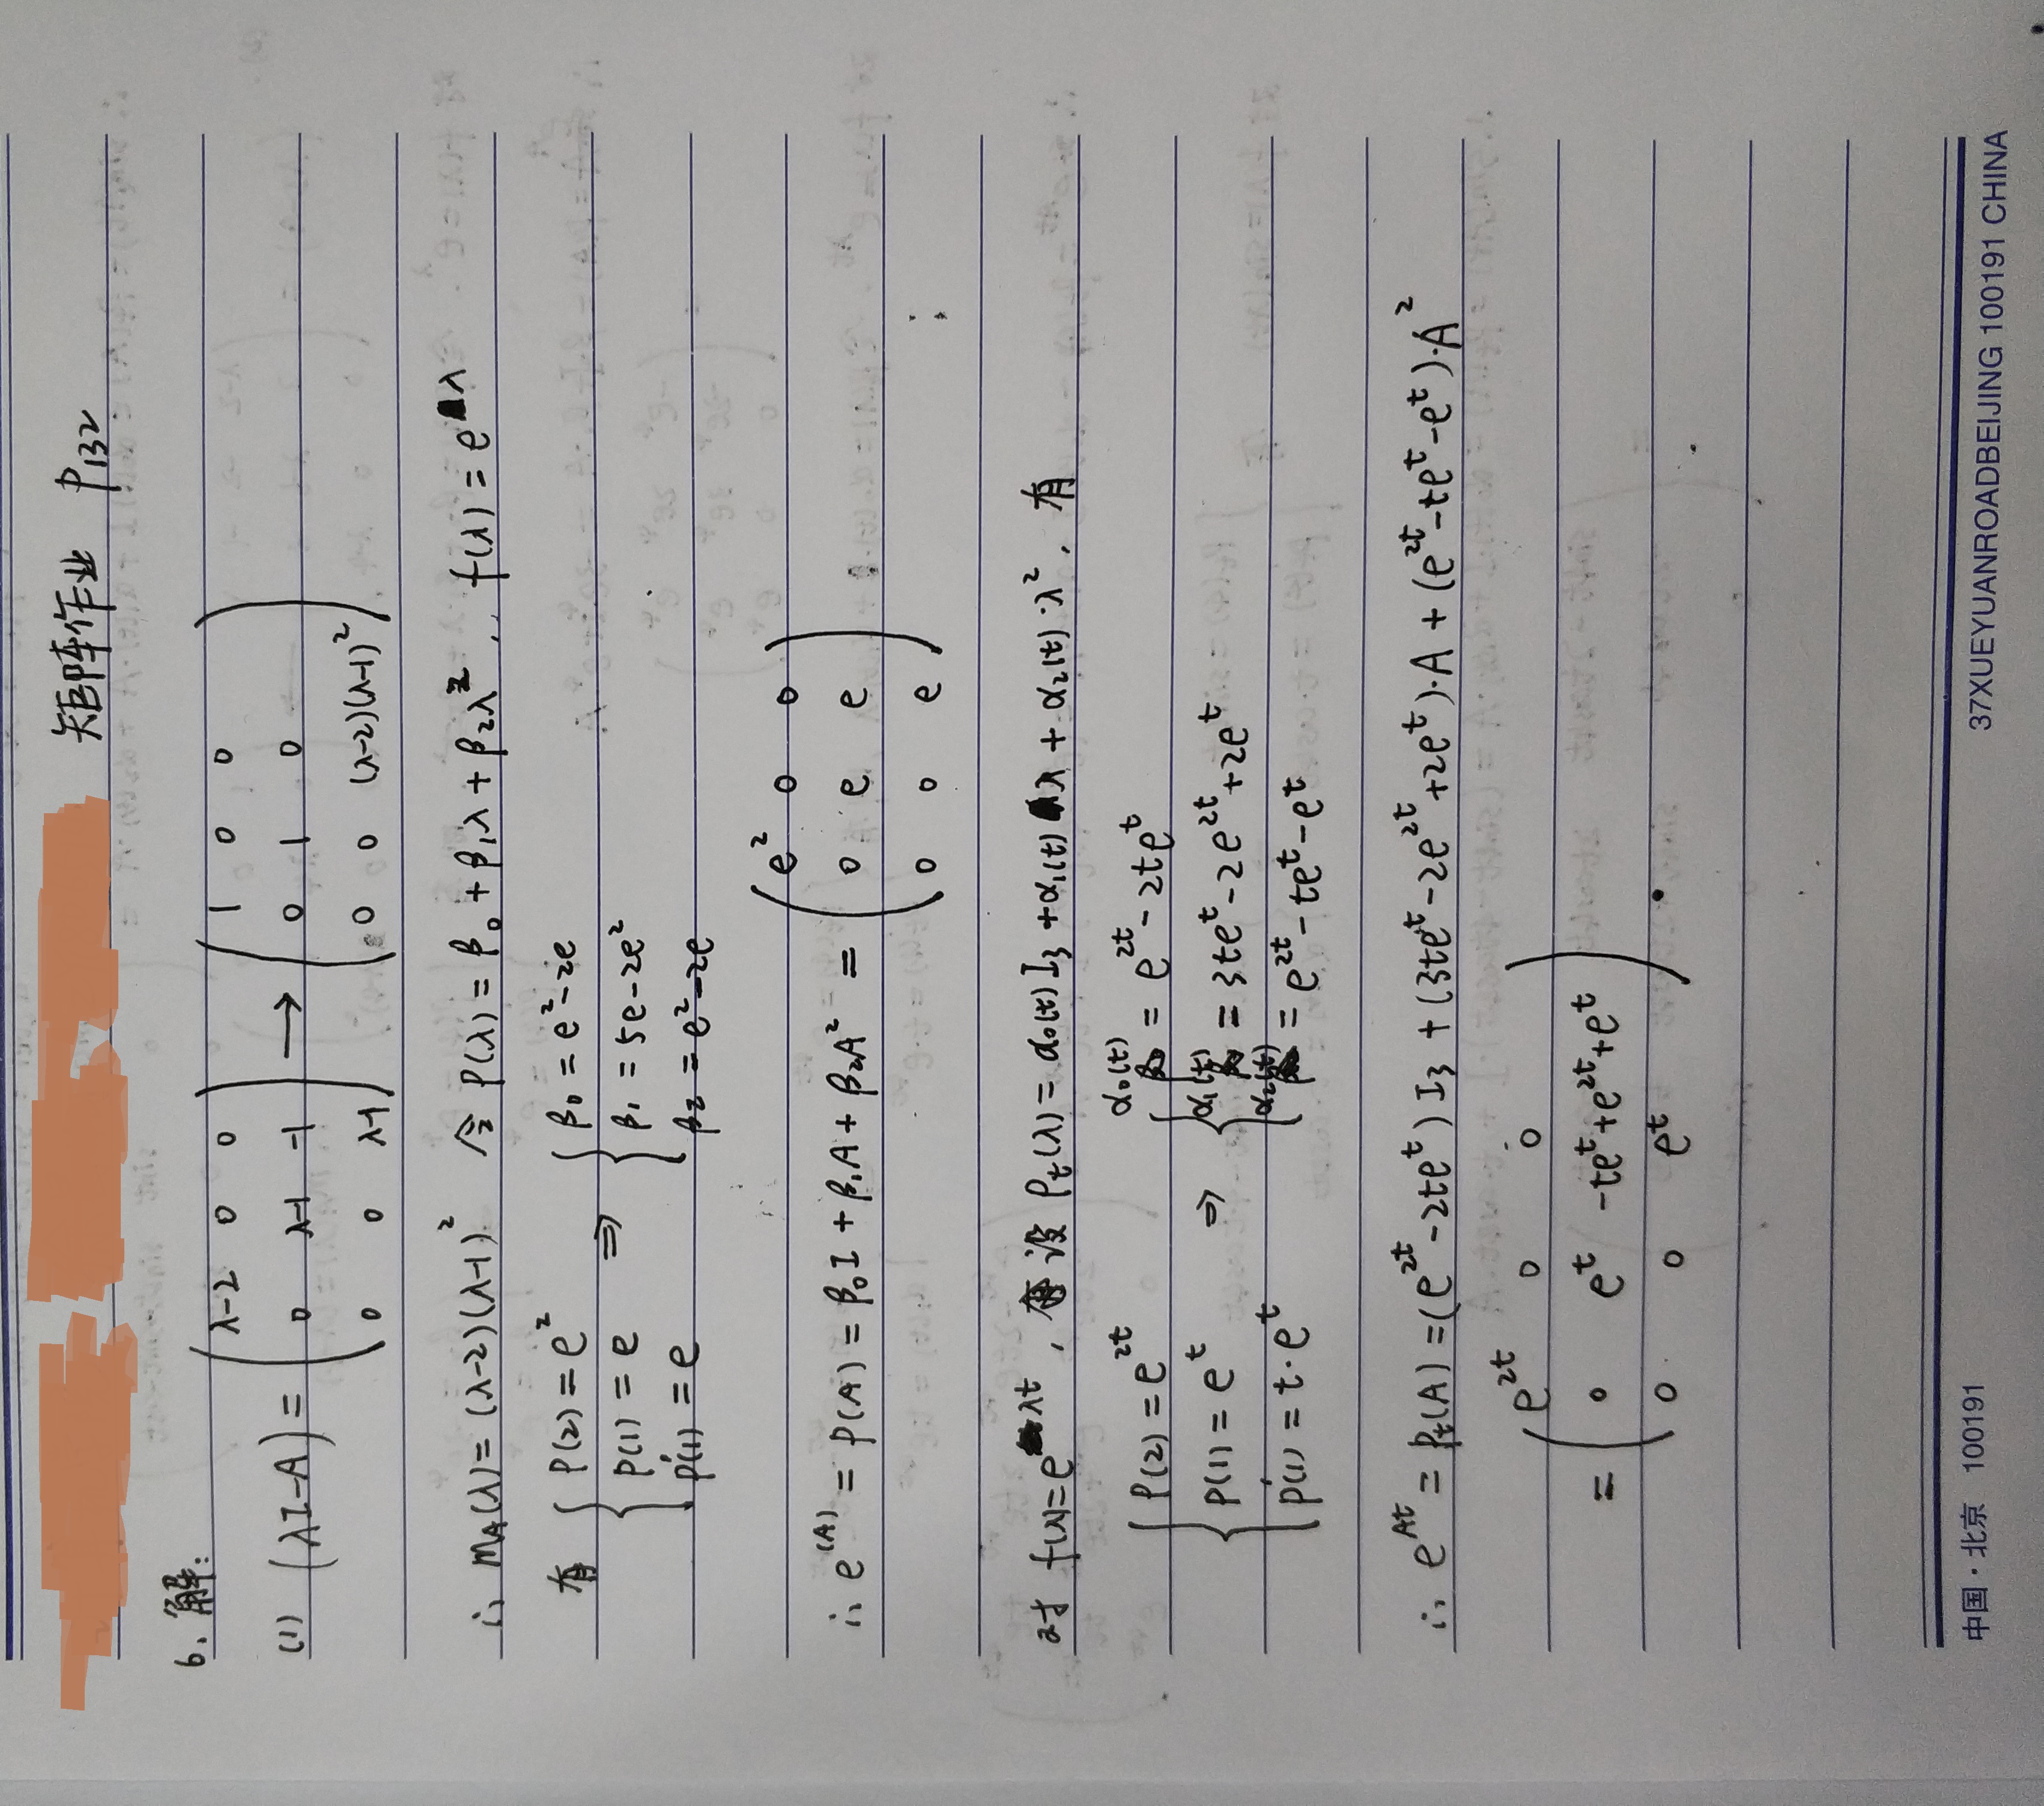 矩阵作业 P₁₃₂
6. 解:
(1) (λI-A) = ( λ-2 0 0 ; 0 λ-1 -1 ; 0 0 λ-1 ) → ( 1 0 0 ; 0 1 0 ; 0 0 (λ-2)(λ-1)² )
∴ m_A(λ) = (λ-2)(λ-1)² 令 P(λ) = β₀ + β₁λ + β₂λ², f(λ) = e^λ
有 { P(2) = e² ⇒ { β₀ = e²-2e
P(1) = e β₁ = 5e-2e²
P'(1) = e β₂ = e²-2e
∴ e^(A) = P(A) = β₀I + β₁A + β₂A² = ( e² 0 0 ; 0 e e ; 0 0 e )
对 f(λ) = e^λt, 再设 P_t(λ) = α₀(t)I₃ + α₁(t)λ + α₂(t)·λ², 有
{ P(2) = e^2t ⇒ { α₀(t) = e^2t - 2te^t
P(1) = e^t α₁(t) = 3te^t - 2e^2t + 2e^t
P'(1) = t·e^t α₂(t) = e^2t - te^t - e^t
∴ e^At = P_t(A) = (e^2t - 2te^t)I₃ + (3te^t - 2e^2t + 2e^t)·A + (e^2t - te^t - e^t)·A²
= ( e^2t 0 0 ; 0 e^t -te^t+e^2t+e^t ; 0 0 e^t ).
中国·北京 100191
37XUEYUANROADBEIJING 100191 CHINA